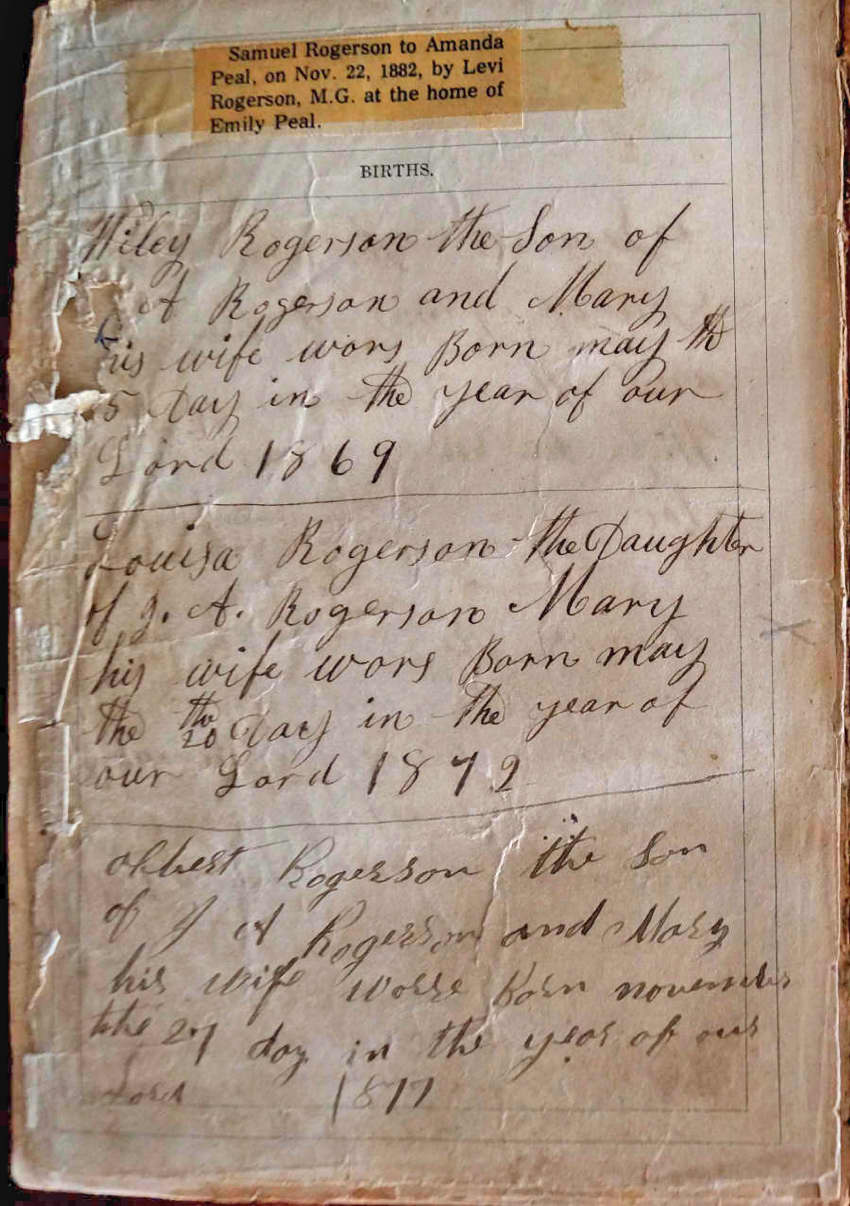 Samuel Rogerson to Amanda
Peal, on Nov. 22, 1882, by Levi
Rogerson, M.G. at the home of
Emily Peal.
BIRTHS.
Wiley Rogerson the Son of
A Rogerson and Mary
his wife wors Born may th
5 Day in the year of our
Lord 1869
Louisa Rogerson the Daughter
of J. A. Rogerson Mary
his wife wors Born may
the 20th Day in the year of
our Lord 1872
Rogerson the Son
of J A Rogerson and Mary
his wife Born november
the 27 day in the year of our
Lord 1877